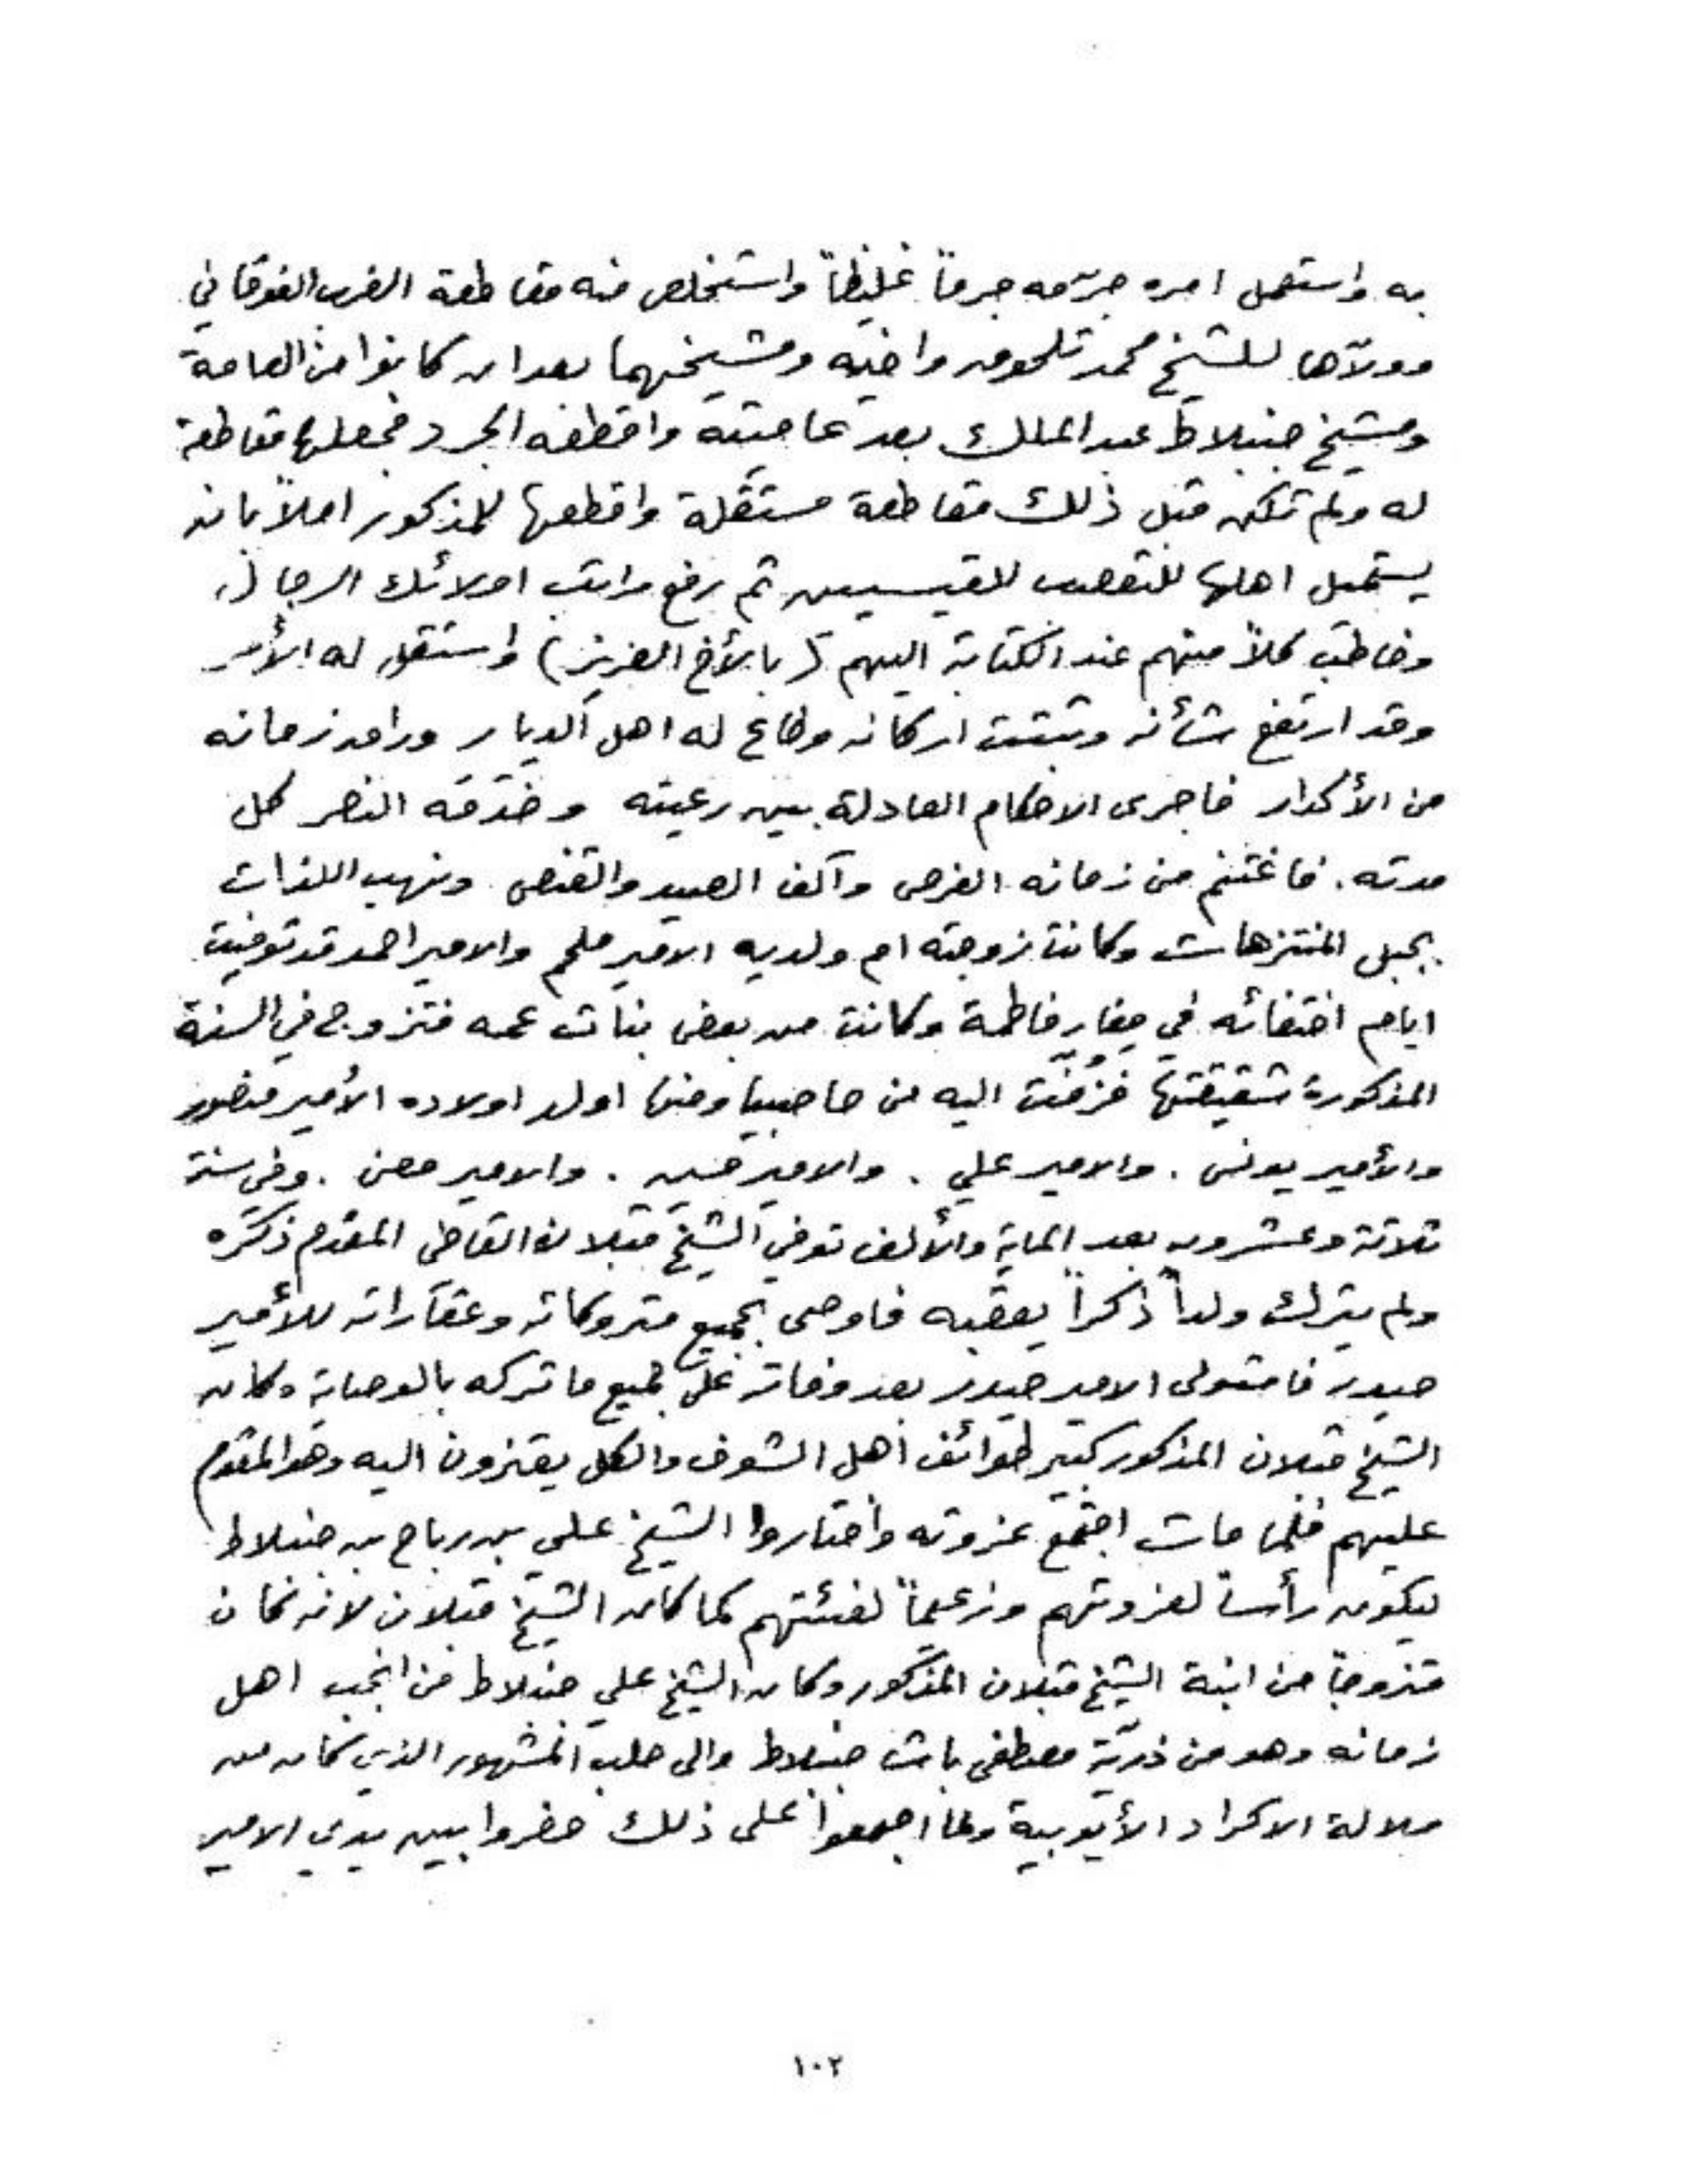 به واستهمل امره جرّمه جرماً غليظاً واستخلص منه مقاطعة الغرب الفوقاني
وولاّها للشيخ محمد تلحوق واخيه ومشيخهما بعد ان كانوا من العامة
ومشيخ جنبلاط عبد الملك بعد عاميته واقطعه الجرد فجعلها مقاطعة
له ولم تكن قبل ذلك مقاطعة مستقلة واقطعها للمذكور املاً بانه
يستميل اهلها للتعصب للقيسيين ثم رفع مراتب اولائك الرجال
وخاطب كلاً منهم عند الكتابة اليهم (بالأخ العزيز) واستقل له الأمر
وقد ارتفع شأنه وثبتت اركانه وطاع له اهل الديار وراق زمانه
من الأكدار فاجرى الاحكام العادلة بين رعيته وخدمه النصر كل
مدته. فاغتنم من زمانه الفرص وآلف الصيد والقنص ونهب اللذات
بجبل المنتزهات وكانت زوجته ام ولديه الامير ملحم والامير احمد قد توفيت
ايام اختفائه في مغار فاطمة وكانت من بعض بنات عمه فتزوج في السنة
المذكورة شقيقتها فزُفّت اليه من حاصبيا ومنها اولد اولاده الأمير منصور
والأمير يونس. والامير علي. والامير حسين. والامير معن. وفي سنة
ثلاثة وعشرون بعد الماية والألف توفي الشيخ قبلان القاضي المقدم ذكره
ولم يترك ولداً ذكراً يعقبه فاوصى بجميع متروكاته وعقاراته للأمير
حيدر فاستولى الامير حيدر بعد وفاته على جميع ما تركه بالوصاية وكان
الشيخ قبلان المذكور كبير طوائف اهل الشوف والكل يعتزون اليه وهو المقدم
عليهم فلما مات اجتمع عزوته واختاروا الشيخ علي بن رباح بن جنبلاط
ليكون رأساً لعزوتهم وزعيماً لفئتهم كما كان الشيخ قبلان لانه كان
متزوجاً من ابنة الشيخ قبلان المذكور وكان الشيخ علي جنبلاط من انجب اهل
زمانه وهو من ذريّة مصطفى باشا جنبلاط والي حلب المشهور الذي كان من
سلالة الاكراد الأيوبية ولما اجمعوا على ذلك حضروا بين يدي الامير
١٠٢